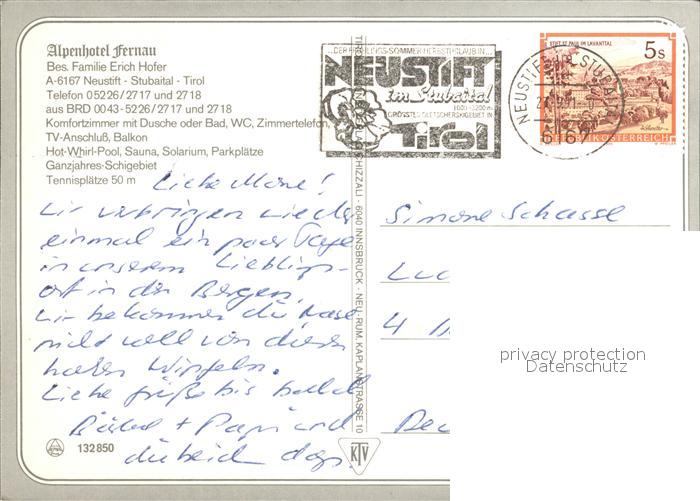 Alpenhotel Fernau
Bes. Familie Erich Hofer
A-6167 Neustift - Stubaital - Tirol
Telefon 05226/2717 und 2718
aus BRD 0043-5226/2717 und 2718
Komfortzimmer mit Dusche oder Bad, WC, Zimmertelefon,
TV-Anschluß, Balkon
Hot-Whirl-Pool, Sauna, Solarium, Parkplätze
Ganzjahres-Schigebiet
Tennisplätze 50 m
Liebe Mone!
Wir verbringen wieder
einmal ein paar Tage
in unserem Lieblings-
ort in den Bergen.
Wir bekommen die Nase
nicht voll von diesen
hohen Wipfeln.
Liebe Grüße bis bald
Bärbel + Papi und
die beid dogs.
132850
CHIZZALI - 6040 INNSBRUCK - NEU-RUM, KAPLANSTRASSE 10
KTV
...DER FRÜHLINGS-SOMMER-HERBSTURLAUB IN...
NEUSTIFT
im Stubaital
GRÖSSTES GLETSCHERSKIGEBIET IN
Tirol
NEUSTIFT IM STUBAITAL
6167
STIFT ST. PAUL IM LAVANTTAL
5 S
REPUBLIK ÖSTERREICH
Simone Schasse
4
privacy protection
Datenschutz